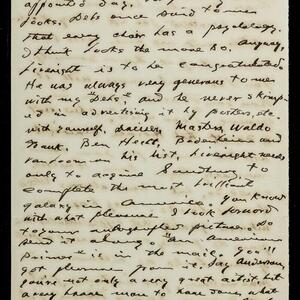 appointed day.
books. Debs once said to me
that every chair has a psychology.
I think books the more so. Anyway,
Liveright is to be congratulated.
He was always very generous to me
with my "Debs," and he never skimp-
ed in advertising it by posters, etc.
with yourself, Dreiser, Masters, Waldo
Frank, Ben Hecht, Bodenheim and
on his list, Liveright needs
only to acquire Sandburg to
complete the most brilliant
galaxy in America. You know
with what pleasure I look forward
to your autographed picture. Do
send it along. "An American
Primer" is in the mail. You'll
get pleasure from it. Say Anderson,
you're not only a very great artist, but
a very brave man to have done what